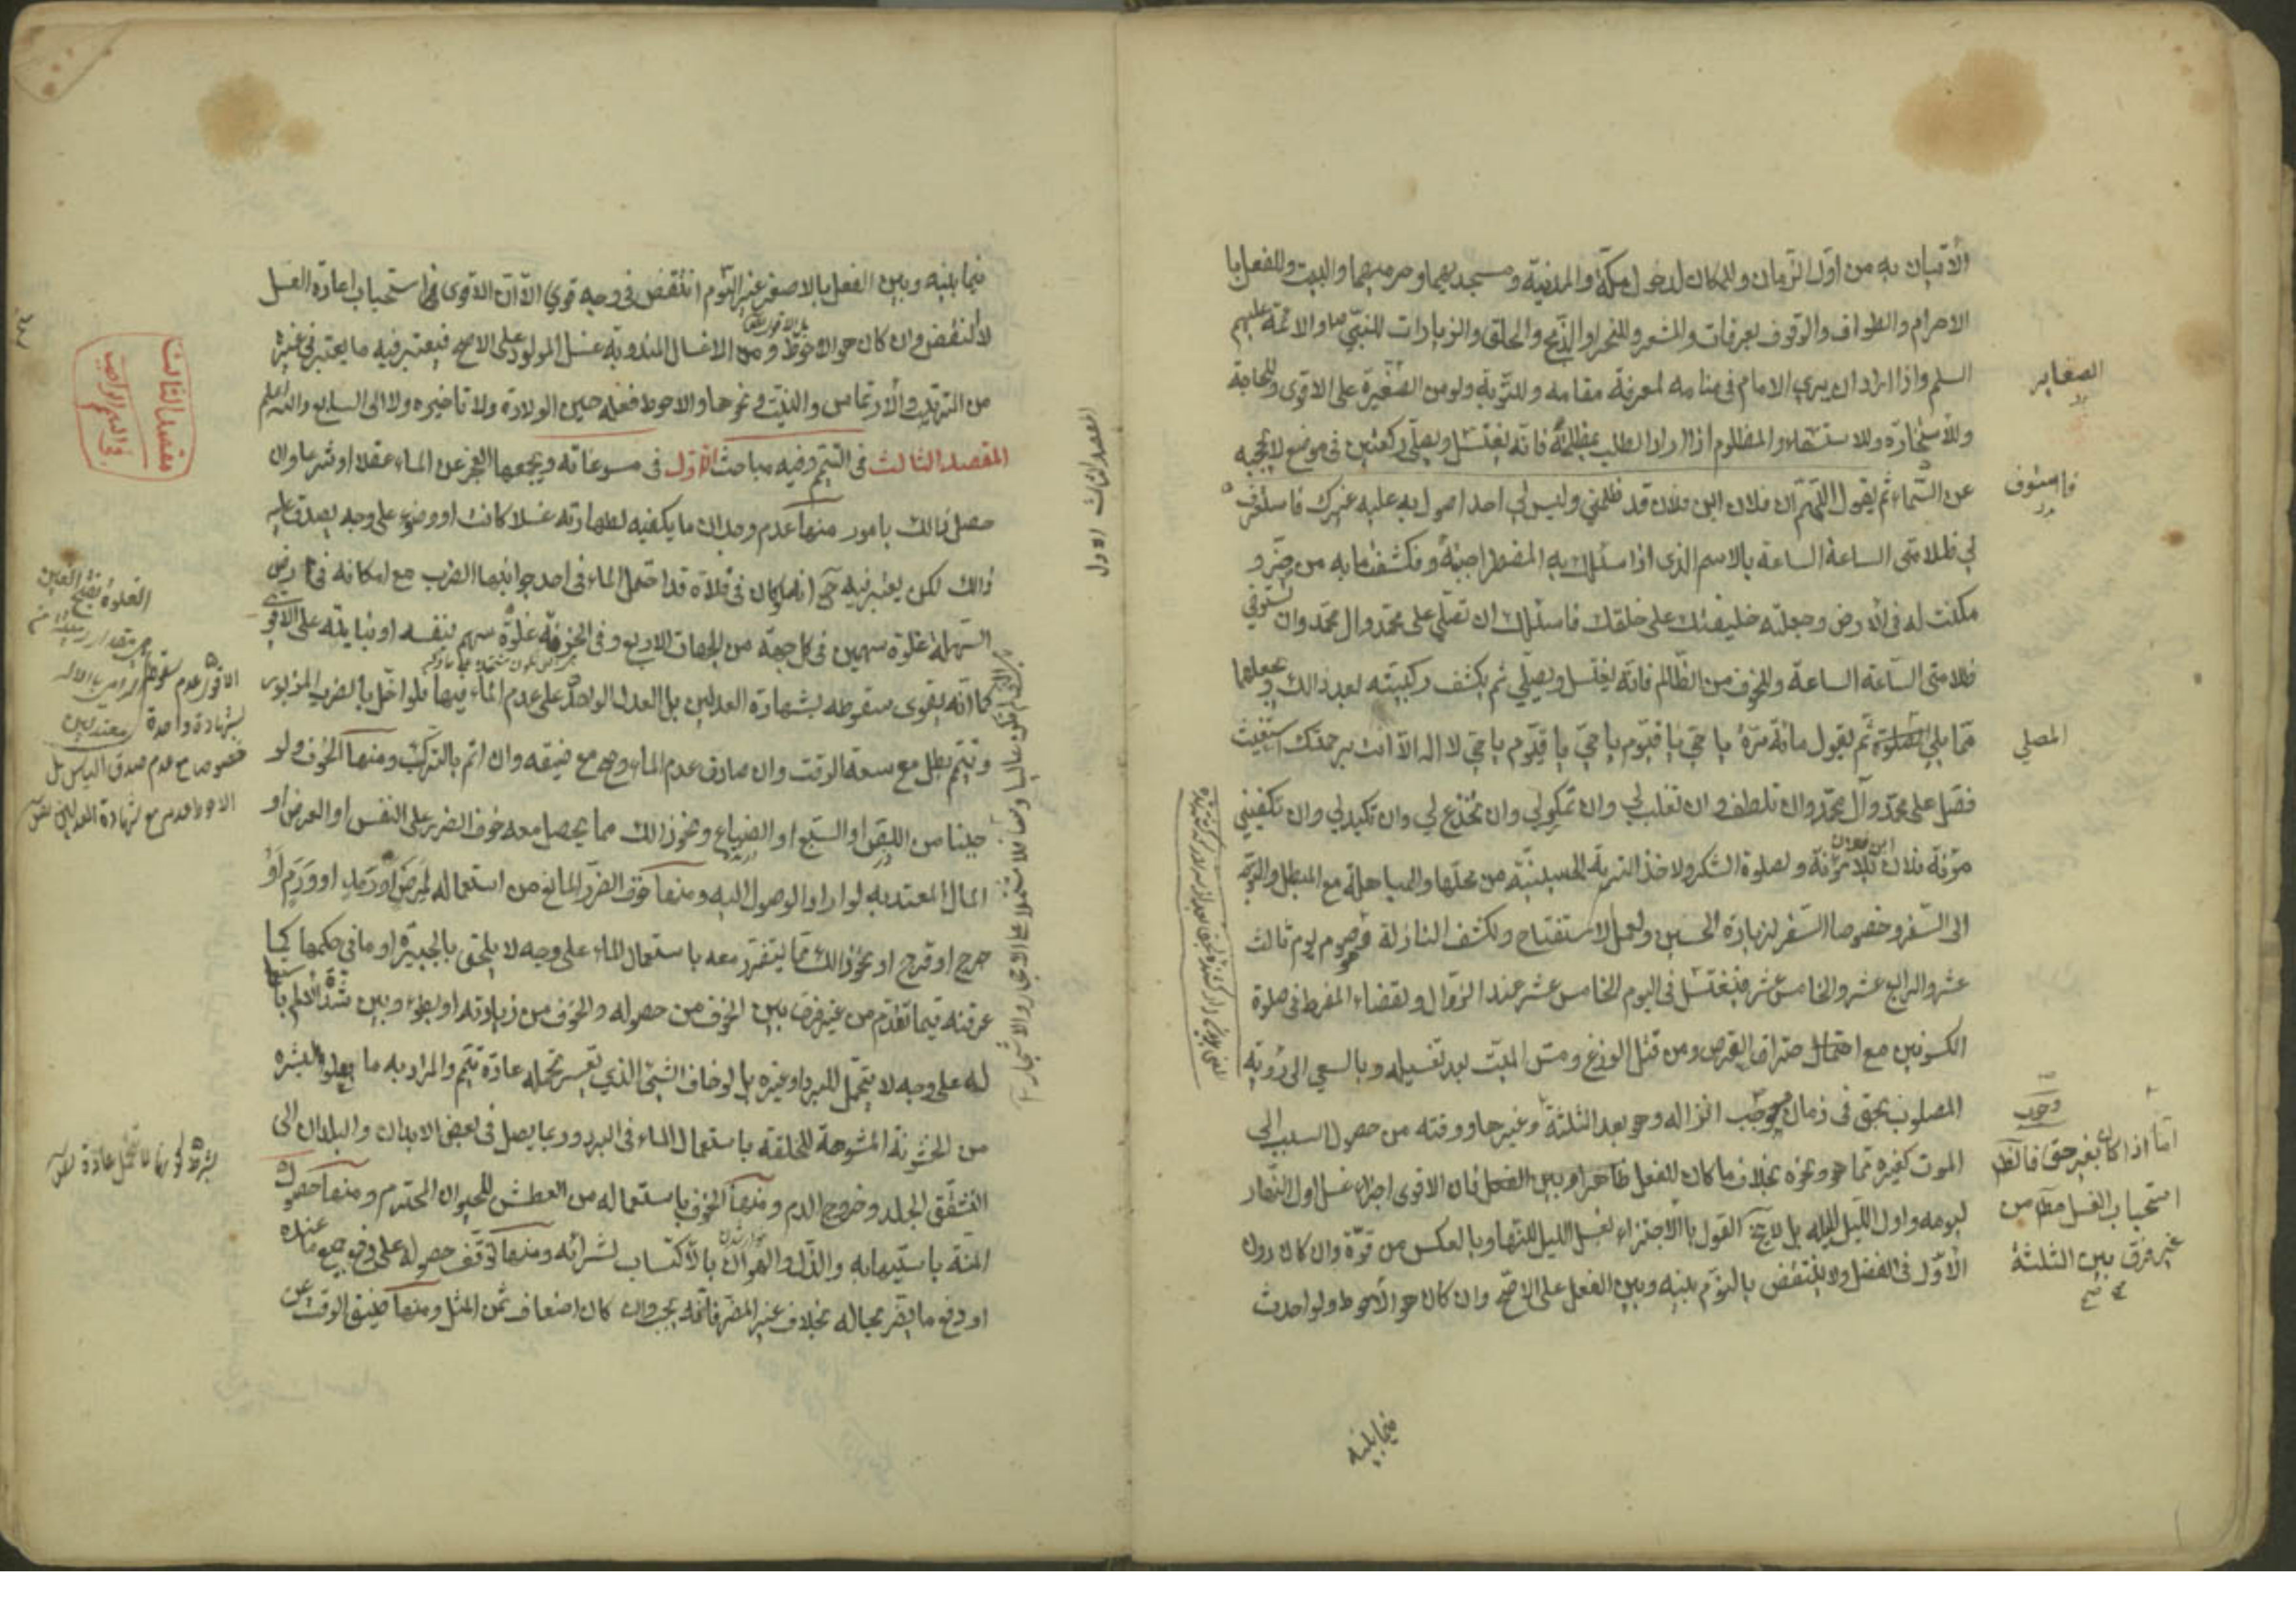 الأتيان به من اول الزمان وللمكان لدخول مكة والمدنية ومسجديهما وحرميهما والبيت وللفعل يا
الاحرام والطواف والوقوف بعرفات والمشعر وللنحر او الذبح والحلق والزيارات للنبي ص والائمة عليهم
السلم واذا اراد ان يري الامام في منامه لمعرفة مقامه وللتوبة ولو من الصغيرة على الاقوى وللحاجة
وللأستخارة وللاستسقاء والمظلوم اذا اراد الطلب بمظلمته فانه يغتسل ويصلي ركعتين في موضع لا يحجبه
عن السماء ثم يقول اللهم ان فلان ابن فلان قد ظلمني وليس لي احد اصول به عليه غيرك فاستوف
لي ظلامتي الساعة الساعة بالاسم الذي اذا سئلك به المضطر اجبته وفكشفت ما به من ضر و
مكنت له في الأرض وجعلته خليفتك على خلقك فاسئلك ان تصلي على محمد وال محمد وان تستوفي
ظلامتي الساعة الساعة وللخوف من الظالم فانه يغتسل ويصلي ثم يكشف ركبتيه بعد ذالك ويجعلهما
مما يلي المصلي ثم يقول مائة مرة يا حي يا قيوم يا حي يا قيوم يا حي لا اله الا انت برحمتك استغيث
فصل على محمد وآل محمد وان تلطف وان تغلب لي وان تمكر لي وان تخدع لي وان تكيد لي وان تكفيني
مؤنة فلان ابن فلان بلا مؤنة ولصلوة الشكر ولاخذ التربة الحسينية من محلها والمباهلة مع المبطل والتوجه
الى السفر وخصوصا السفر لزيارة الحسين ولعمل الاستفتاح ولكشف النازلة فيصوم يوم ثالث
عشر والرابع عشر والخامس عشر فيغتسل في اليوم الخامس عشر عند الزوال ولقضاء المفرط في صلوة
الكسوفين مع احتمال احتراق القرص ومن قتل الوزغ ومس الميت بعد تغسيله وبالسعي الى رؤية
المصلوب بحق في زمان موجب انزاله وهو بعد الثلثة وغيرها ووقته من حصول السبب الى
الموت كغيره مما هو ونحوه بخلاف ما كان للفعل ظاهرا وبين الفعل فان الاقوى اجزاء غسل اول النهار
ليومه واول الليل لليله بل لا يخ القول بالأجتزاء بغسل الليل للنهار وبالعكس من قوة وان كان دون
الأول في الفضل ولا ينتقض بالنوم بينه وبين الفعل على الاصح وان كان هو الأحوط ولو احدث
فيما بينه
الصغاير
فاستوف
المصلي
وجوب
اما اذا كان بغير حق فالظ
استحباب الغسل مطلقا من
غير فرق بين الثلثة
المقصد الثالث الاول
فيما بينه وبين الفعل بالاصغر غير النوم انتقض في وجه قوي الا ان الاقوى في استحباب اعادة الغسل
لا النقض وان كان هو الاحوط ومن الاغسال المندوبة غسل المولود على الاصح فيعتبر فيه ما يعتبر في غيره
من الترتيب والأرتماس والنيت ونحوها والاحوط فعله حين الولادة ولا تاخيره ولا الى السابع والله اعلم
المقصد الثالث في التيمم وفيه مباحث الأول في مسوغاته ويجمعها العجز عن الماء عقلا او شرعا وان
حصل ذالك بامور منها عدم وجدان ما يكفيه لطهارته غسلا كانت او وضوء على وجه يصدق عليه
ذالك لكن يعتبر فيه حتى اذا كان في فلاة قد احتمل الماء في احد جوانبها الضرب مع امكانه في الارض
السهلة غلوة سهمين في كل جهة من الجهات الاربع وفي الحزنة غلوة سهم بنفسه او نيابته على الاقوى
كما انه يقوى سقوطه بشهادة العدلين بل العدل الواحد على عدم الماء فيها فلو اخل بالضرب المزبور
وتيمم بطل مع سعة الوقت وان صادف عدم الماء وصح مع ضيقه وان اثم بالترك ومنها الخوف ولو
جبنا من اللص او السبع او الضياع ونحو ذالك مما يحصل معه خوف الضرر على النفس او العرض او
المال المعتد به لو اراد الوصول اليه ومنها خوف الضرر المانع من استعماله لمرض او رمد او ورم او
جرح او قرح او نحو ذالك مما يتضرر معه باستعمال الماء على وجه لا يلحق بالجبيرة او ما في حكمها كما
عرفته فيما تقدم من غير فرق بين الخوف من حصوله والخوف من زيادته او بطوء وبين شدة الالم باستعماله
له على وجه لا يتحمل للبرد او غيره بل لو خاف الشين الذي يعسر تحمله عادة تيمم والمراد به ما يعلو البشره
من الخشونة المشوهة للخلقة باستعمال الماء في البرد وربما يصل في بعض الابدان والبلدان الى
التشقق الجلد وخروج الدم ومنها الخوف باستعماله من العطش للحيوان المحترم ومنها حصول
المنة باستيهابه والذل والهوان بالأكتساب لشرائه ومنها توقف حصوله على دفع جميع ما عنده
او دفع ما يضر بحاله بخلاف غير المضر فانه يجب وان كان اضعاف ثمن المثل ومنها ضيق الوقت عن
مقصد الثالث
في التيمم
الغلوة بفتح العين
الاقوى عدم سقوطه
بشهادة واحدة
خصوصا مع عدم صدق الياس بل
الاحوط عدمه مع شهادة العدلين